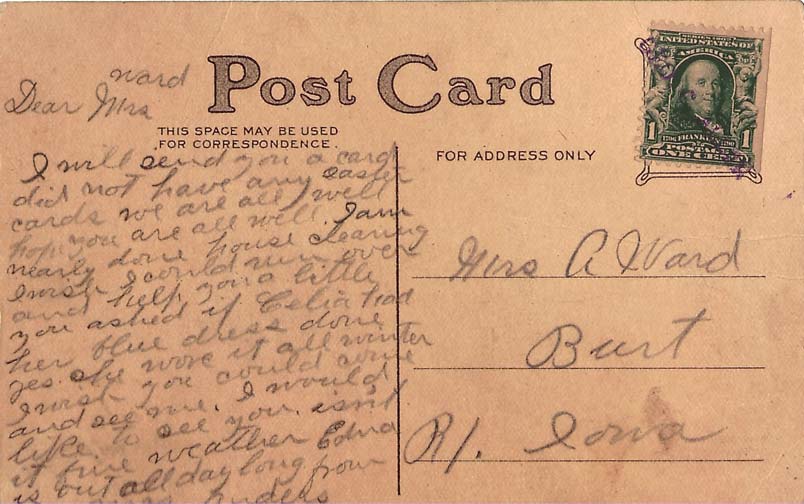 Post Card
THIS SPACE MAY BE USED
FOR CORRESPONDENCE.
FOR ADDRESS ONLY
SERIES 1902
UNITED STATES OF
AMERICA
1706 FRANKLIN 1790
1 POSTAGE 1
ONE CENT
Ward
Dear Mrs
I will send you a card
did not have any easter
cards we are all well
hope you are all well. I am
nearly done house cleaning
I wish I could run over
and help you a little
you asked if Celia had
her blue dress done
yes. she wore it all winter
I wish you could come
and see me. I would
like to see you. isn't
it fine weather Edna
is out all day long from
Mrs A Ward
Burt
R1. Iowa